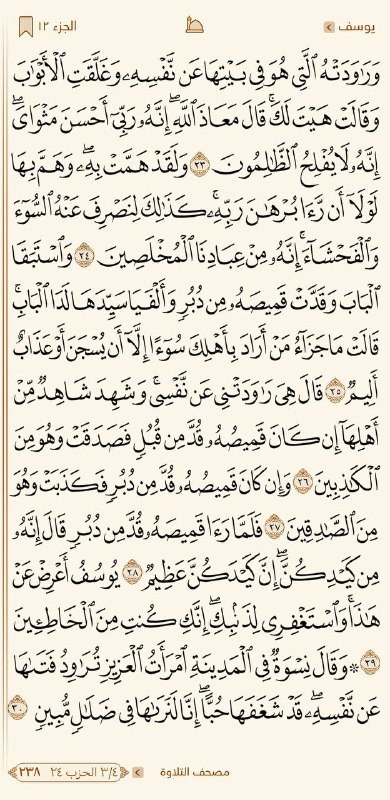 يوسف
الجزء ١٢
وَرَٰوَدَتْهُ ٱلَّتِى هُوَ فِى بَيْتِهَا عَن نَّفْسِهِۦ وَغَلَّقَتِ ٱلْأَبْوَٰبَ
وَقَالَتْ هَيْتَ لَكَ ۚ قَالَ مَعَاذَ ٱللَّهِ ۖ إِنَّهُۥ رَبِّىٓ أَحْسَنَ مَثْوَاىَ ۖ
إِنَّهُۥ لَا يُفْلِحُ ٱلظَّٰلِمُونَ ٢٣ وَلَقَدْ هَمَّتْ بِهِۦ ۖ وَهَمَّ بِهَا
لَوْلَآ أَن رَّءَا بُرْهَٰنَ رَبِّهِۦ ۚ كَذَٰلِكَ لِنَصْرِفَ عَنْهُ ٱلسُّوٓءَ
وَٱلْفَحْشَآءَ ۚ إِنَّهُۥ مِنْ عِبَادِنَا ٱلْمُخْلَصِينَ ٢٤ وَٱسْتَبَقَا
ٱلْبَابَ وَقَدَّتْ قَمِيصَهُۥ مِن دُبُرٍ وَأَلْفَيَا سَيِّدَهَا لَدَا ٱلْبَابِ ۚ
قَالَتْ مَا جَزَآءُ مَنْ أَرَادَ بِأَهْلِكَ سُوٓءًا إِلَّآ أَن يُسْجَنَ أَوْ عَذَابٌ
أَلِيمٌ ٢٥ قَالَ هِىَ رَٰوَدَتْنِى عَن نَّفْسِى ۚ وَشَهِدَ شَاهِدٌ مِّنْ
أَهْلِهَآ إِن كَانَ قَمِيصُهُۥ قُدَّ مِن قُبُلٍ فَصَدَقَتْ وَهُوَ مِنَ
ٱلْكَٰذِبِينَ ٢٦ وَإِن كَانَ قَمِيصُهُۥ قُدَّ مِن دُبُرٍ فَكَذَبَتْ وَهُوَ
مِنَ ٱلصَّٰدِقِينَ ٢٧ فَلَمَّا رَءَا قَمِيصَهُۥ قُدَّ مِن دُبُرٍ قَالَ إِنَّهُۥ
مِن كَيْدِكُنَّ ۖ إِنَّ كَيْدَكُنَّ عَظِيمٌ ٢٨ يُوسُفُ أَعْرِضْ عَنْ
هَٰذَا ۚ وَٱسْتَغْفِرِى لِذَنۢبِكِ ۖ إِنَّكِ كُنتِ مِنَ ٱلْخَاطِـِٔينَ
٢٩ ۞ وَقَالَ نِسْوَةٌ فِى ٱلْمَدِينَةِ ٱمْرَأَتُ ٱلْعَزِيزِ تُرَٰوِدُ فَتَىٰهَا
عَن نَّفْسِهِۦ ۖ قَدْ شَغَفَهَا حُبًّا ۖ إِنَّا لَنَرَىٰهَا فِى ضَلَٰلٍ مُّبِينٍ ٣٠
مصحف التلاوة
٣/٤ الحزب ٢٤
٢٣٨